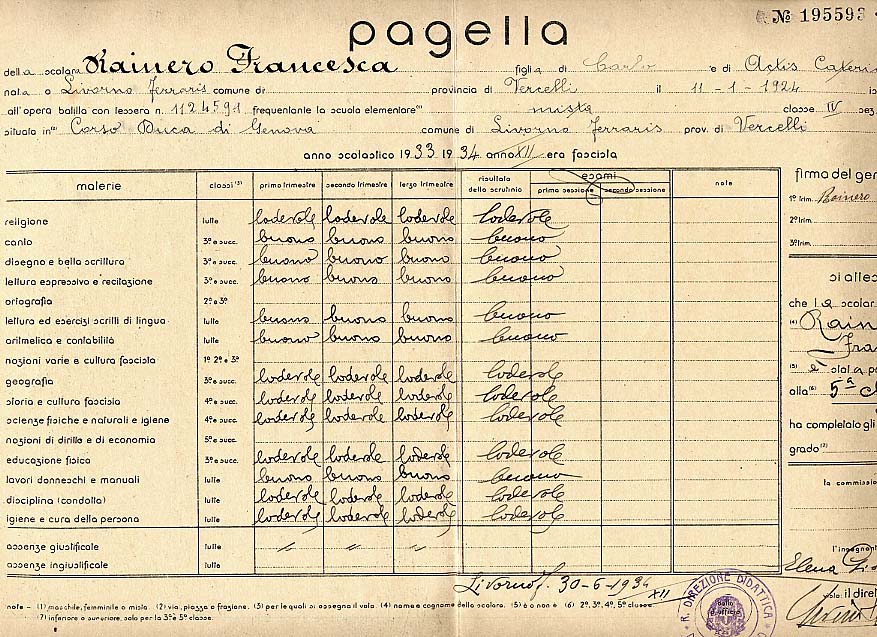 № 195593
pagella
della scolara Rainero Francesca figlia di Carlo e di Actis
nata a Livorno Ferraris comune di provincia di Vercelli il 11-1-1924
all'opera balilla con tessera n. 1124591 frequentante la scuola elementare (1) mista classe IV sez.
situata in (2) Corso Duca di Genova comune di Livorno Ferraris prov. di Vercelli
anno scolastico 1933 1934 anno XII era fascista
materie classi (3) primo trimestre secondo trimestre terzo trimestre risultato dello scrutinio esami prima sessione seconda sessione note
religione tutte lodevole lodevole lodevole lodevole
canto 3ª e succ. buono buono buono buono
disegno e bella scrittura 3ª e succ. buono buono buono buono
lettura espressiva e recitazione 3ª e succ. buono buono buono buono
ortografia 2ª e 3ª
lettura ed esercizi scritti di lingua tutte buono buono buono buono
aritmetica e contabilità tutte buono buono buono buono
nozioni varie e cultura fascista 1ª 2ª e 3ª
geografia 3ª e succ. lodevole lodevole lodevole lodevole
storia e cultura fascista 4ª e succ. lodevole lodevole lodevole lodevole
scienze fisiche e naturali e igiene 4ª e succ. lodevole lodevole lodevole lodevole
nozioni di diritto e di economia 5ª e succ.
educazione fisica 3ª e succ. lodevole lodevole lodevole lodevole
lavori donneschi e manuali tutte buono buono buono buono
disciplina (condotta) tutte lodevole lodevole lodevole lodevole
igiene e cura della persona tutte lodevole lodevole lodevole lodevole
assenze giustificate tutte " " "
assenze ingiustificate tutte
Livorno f. 30-6-1934 XII
note - (1) maschile, femminile o mista. (2) via, piazza o frazione. (3) per le quali si assegna il voto. (4) nome e cognome dello scolaro. (5) è o non è (6) 2ª, 3ª, 4ª, 5ª classe.
(7) inferiore o superiore, solo per la 3ª e 5ª classe.
R. DIREZIONE DIDATTICA
firma del
1º trim. Rainero
2º trim.
3º trim.
si
che la scolar
(4) Rain
Fra
(5) è stata
alla (6) 5ª
ha completato gli
grado (7)
la
Elena